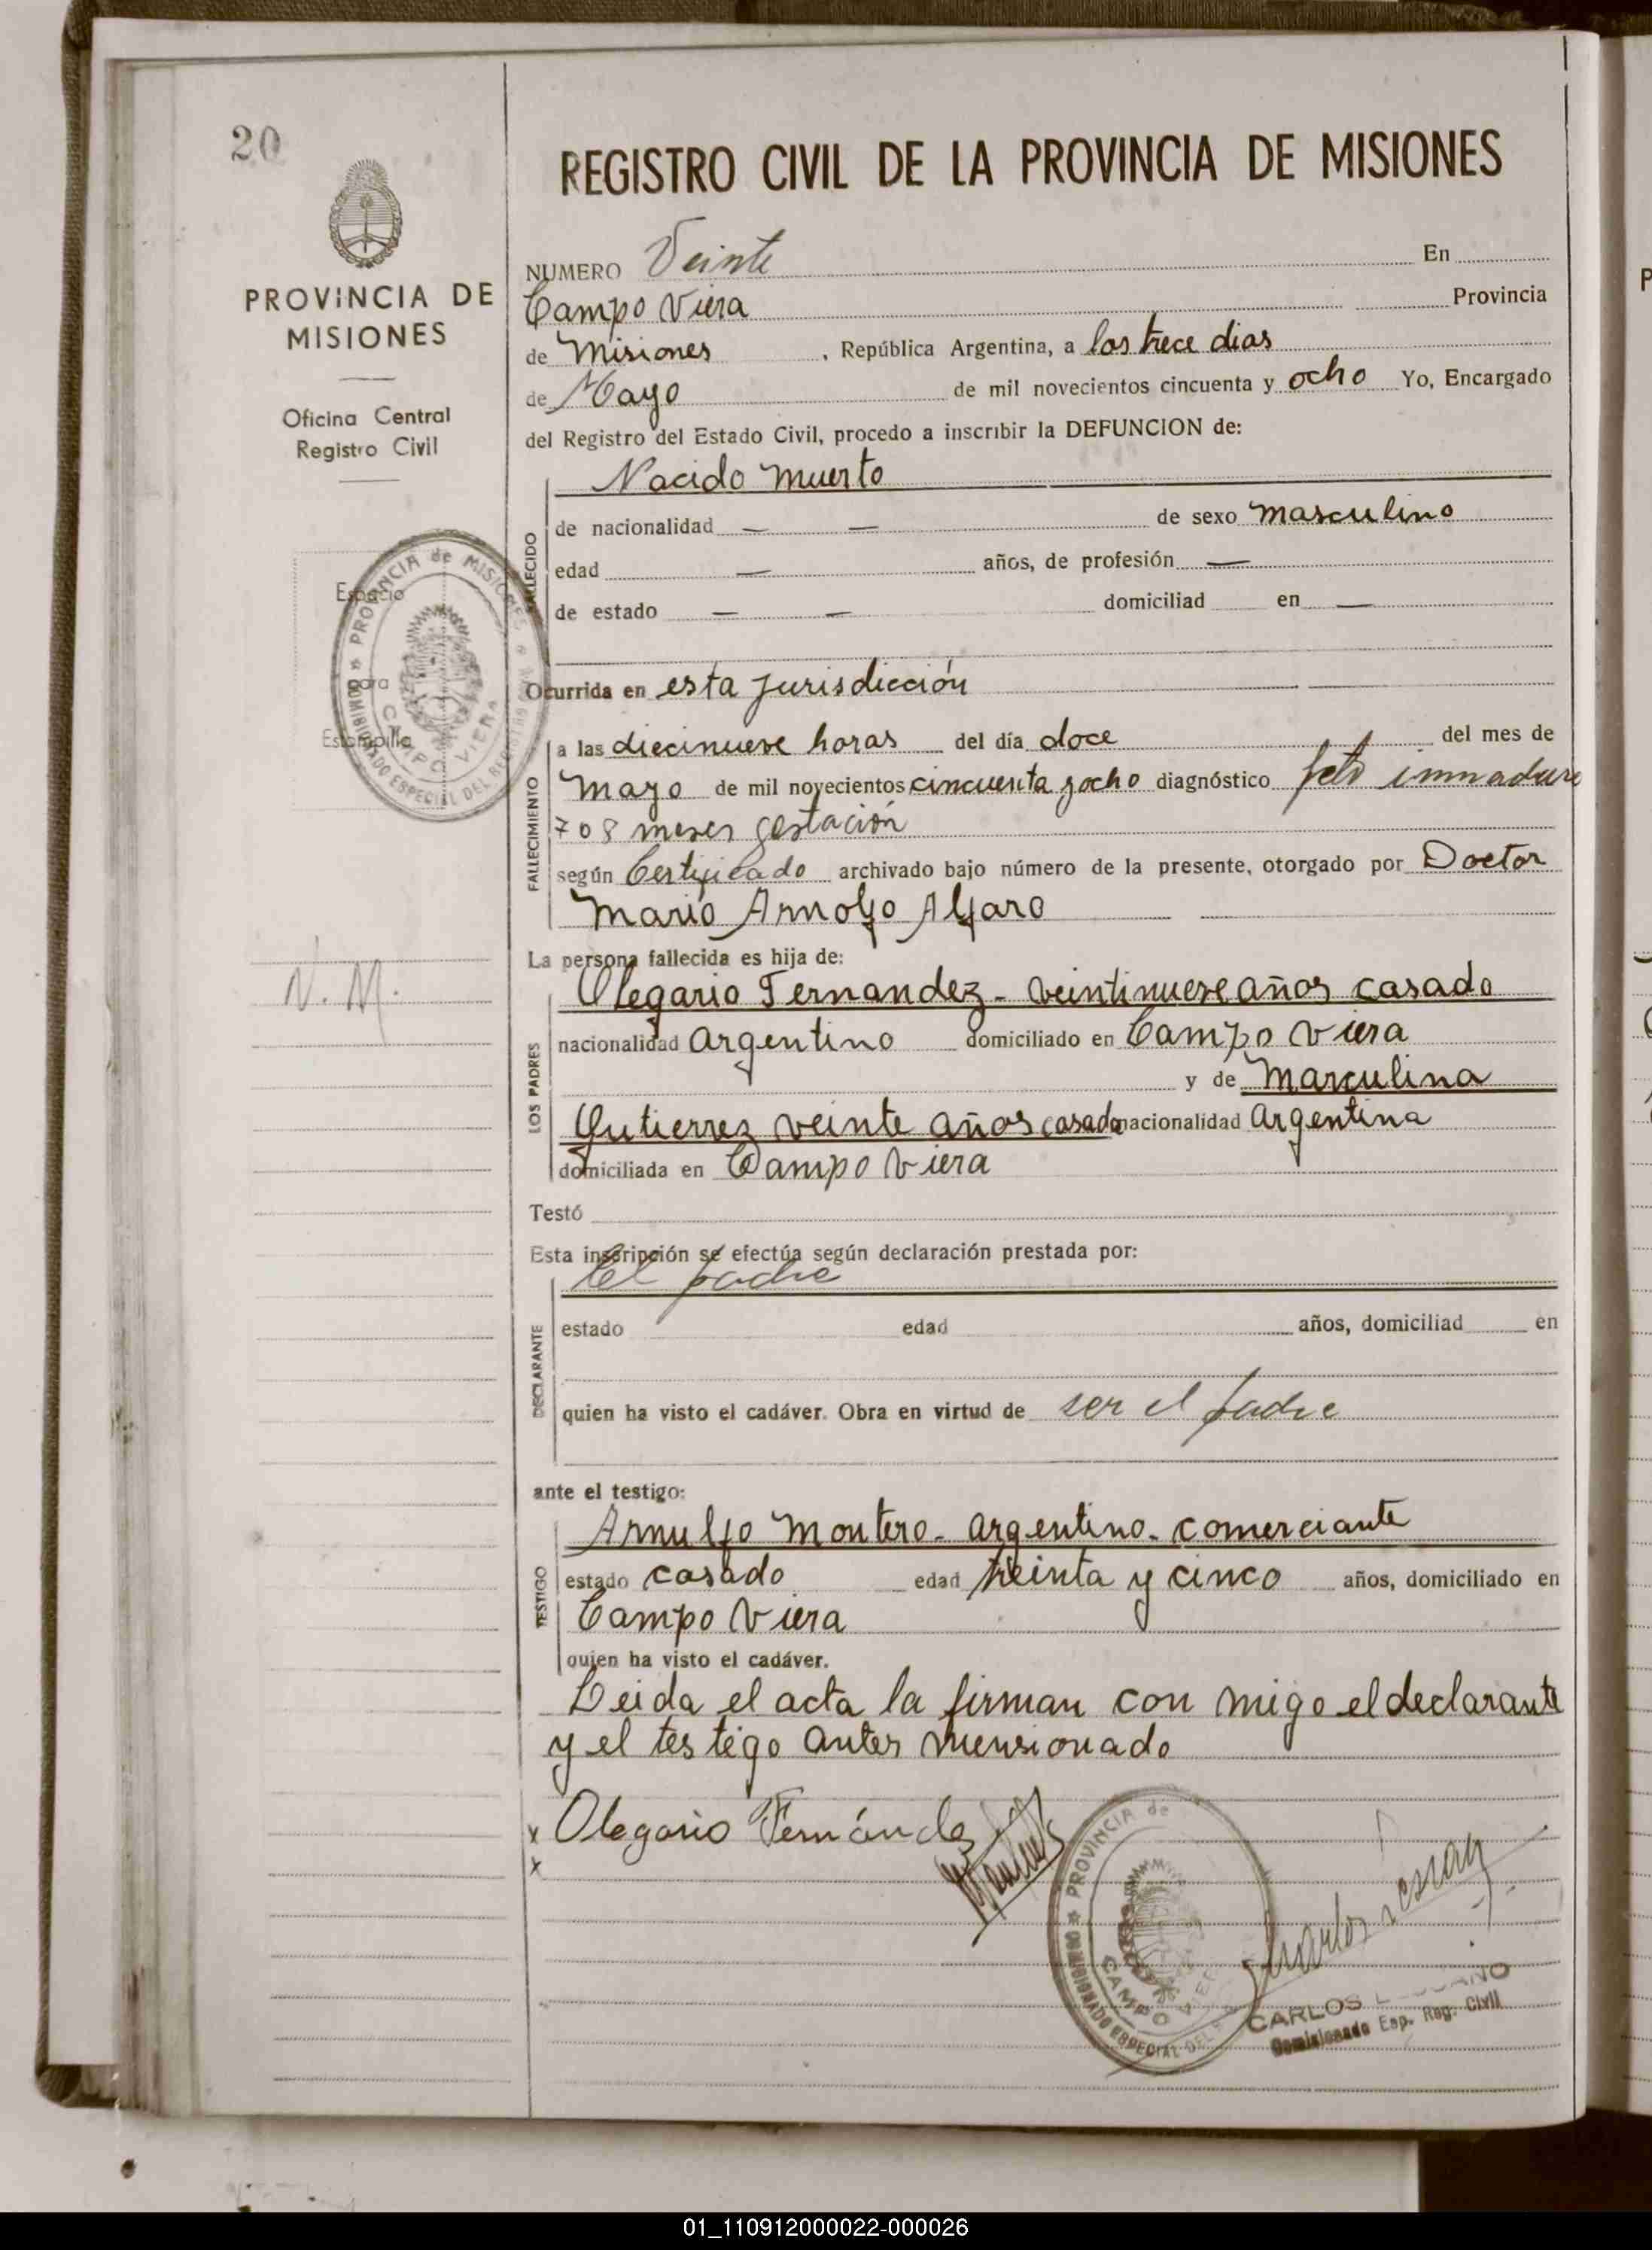 20
REGISTRO CIVIL DE LA PROVINCIA DE MISIONES
PROVINCIA DE
MISIONES
Oficina Central
Registro Civil
Espacio
para
Estampilla
PROVINCIA de MISIONES
COMISIONADO ESPECIAL DEL
CAMPO VIERA
N. M.
NUMERO Veinte En
Campo Viera Provincia
de Misiones , República Argentina, a los trece dias
de Mayo de mil novecientos cincuenta y ocho Yo, Encargado
del Registro del Estado Civil, procedo a inscribir la DEFUNCION de:
Nacido muerto
FALLECIDO
de nacionalidad — — de sexo masculino
edad — años, de profesión —
de estado — — domiciliad en —
Ocurrida en esta jurisdicción
FALLECIMIENTO
a las diecinueve horas del día doce del mes de
mayo de mil novecientos cincuenta y ocho diagnóstico feto inmaduro
7 o 8 meses gestación
según Certificado archivado bajo número de la presente, otorgado por Doctor
Mario Arnolfo Alfaro
La persona fallecida es hija de:
LOS PADRES
Olegario Fernandez - veintinueve años casado
nacionalidad argentino domiciliado en Campo Viera
y de Marculina
Gutierrez veinte años casada nacionalidad argentina
domiciliada en Campo Viera
Testó
Esta inscripción se efectúa según declaración prestada por:
el padre
DECLARANTE
estado edad años, domiciliad en
quien ha visto el cadáver. Obra en virtud de ser el padre
ante el testigo:
TESTIGO
Arnulfo Montero - argentino - comerciante
estado casado edad treinta y cinco años, domiciliado en
Campo Viera
quien ha visto el cadáver.
Leida el acta la firman con migo el declarante
y el testigo antes mensionado
x Olegario Fernández
x
PROVINCIA de
COMISIONADO ESPECIAL DEL
CAMPO VIERA
CARLOS
Comisionado Esp. Reg. Civil
01_110912000022-000026